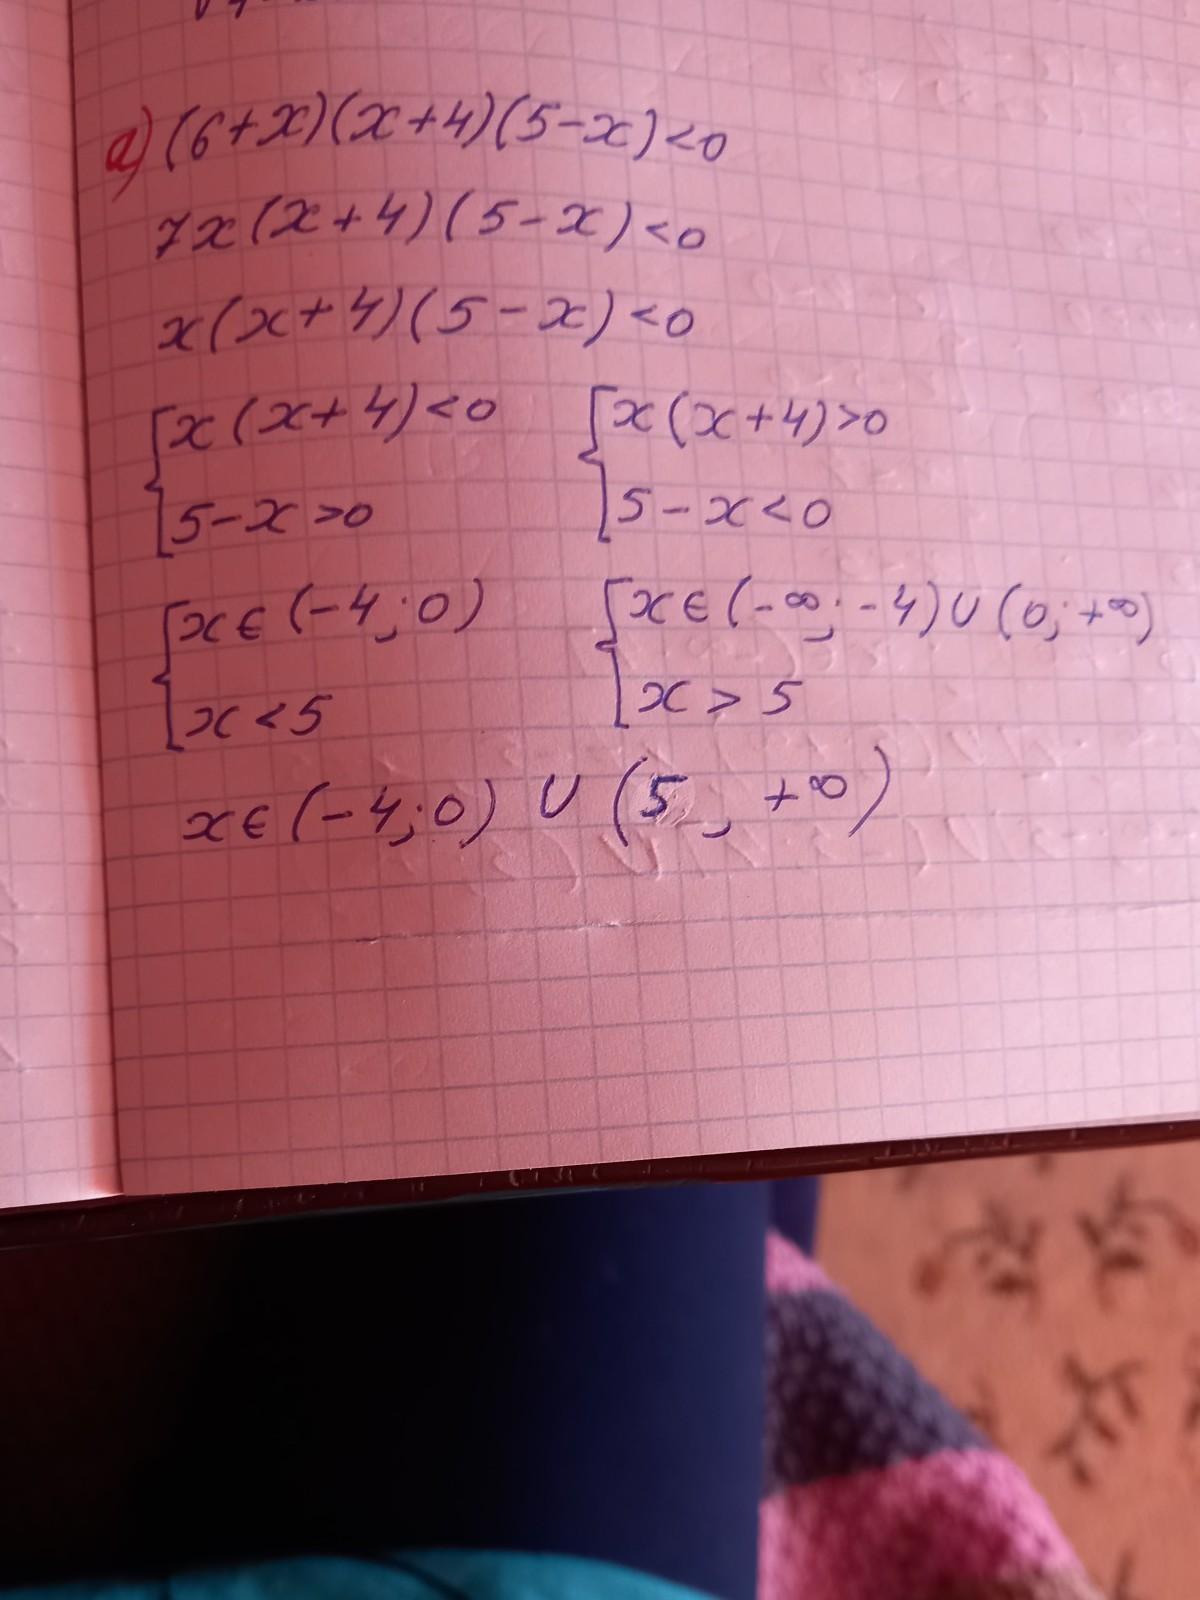 а) (6+x)(x+4)(5-x)<0
7x(x+4)(5-x)<0
x(x+4)(5-x)<0
x(x+4)<0 x(x+4)>0
5-x>0 5-x<0
x∈(-4;0) x∈(-∞;-4)∪(0;+∞)
x<5 x>5
x∈(-4;0) ∪ (5; +∞)